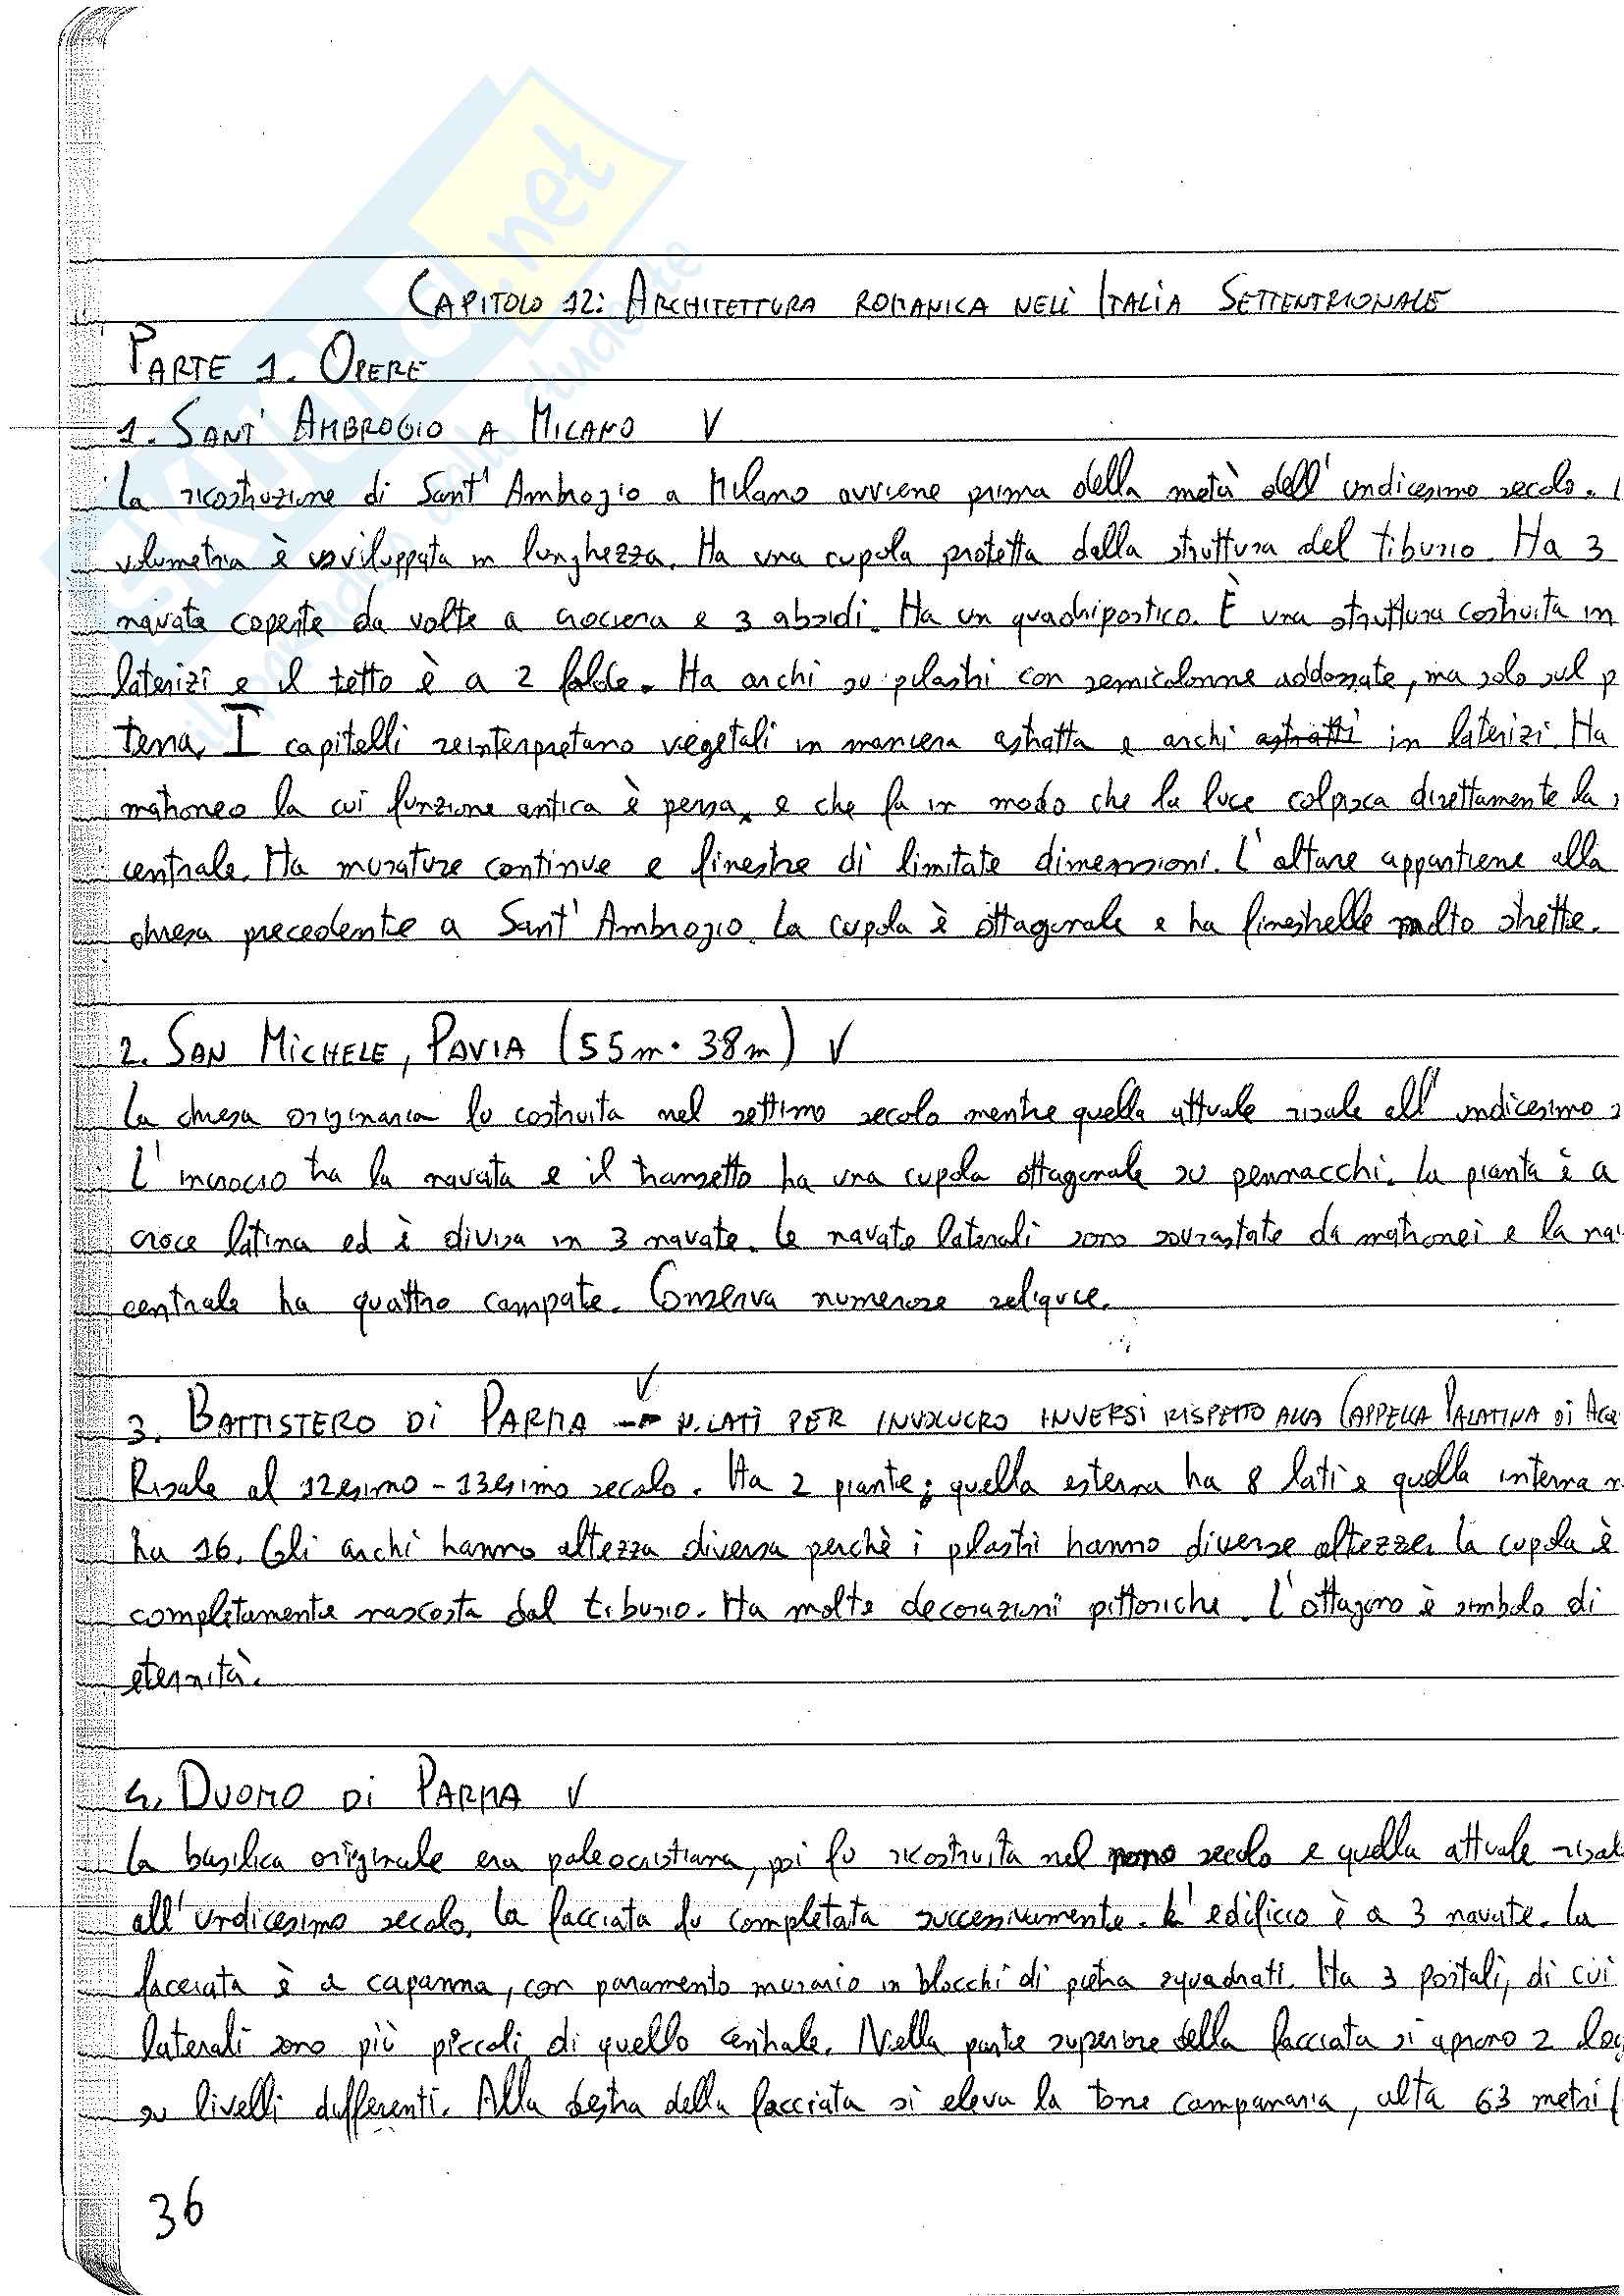 CAPITOLO 12: ARCHITETTURA ROMANICA NELL'ITALIA SETTENTRIONALE
PARTE 1. OPERE
1. SANT'AMBROGIO A MILANO V
La ricostruzione di Sant'Ambrogio a Milano avviene prima della metà dell'undicesimo secolo.
volumetria è sviluppata in lunghezza. Ha una cupola protetta dalla struttura del tiburio. Ha 3
navate coperte da volte a crociera e 3 absidi. Ha un quadriportico. È una struttura costruita in
laterizi e il tetto è a 2 falde. Ha archi su pilastri con semicolonne addossate, ma solo sul p
terra. I capitelli reinterpretano vegetali in maniera astratta e archi astratti in laterizi. Ha
matroneo la cui funzione antica è persa, e che fa in modo che la luce colpisca direttamente la
centrale. Ha murature continue e finestre di limitate dimensioni. L'altare appartiene alla
chiesa precedente a Sant'Ambrogio. La cupola è ottagonale e ha finestrelle molto strette.
2. SAN MICHELE, PAVIA (55m · 38m) V
La chiesa originaria fu costruita nel settimo secolo mentre quella attuale risale all'undicesimo s
L'incrocio tra la navata e il transetto ha una cupola ottagonale su pennacchi. La pianta è a
croce latina ed è divisa in 3 navate. Le navate laterali sono sovrastate da matronei e la na
centrale ha quattro campate. Conserva numerose reliquie.
3. BATTISTERO DI PARMA V → N. LATI PER INVOLUCRO INVERSI RISPETTO ALLA CAPPELLA PALATINA DI ACQ
Risale al 12esimo - 13esimo secolo. Ha 2 piante; quella esterna ha 8 lati e quella interna n
ha 16. Gli archi hanno altezza diversa perchè i pilastri hanno diverse altezze. La cupola è
completamente nascosta dal tiburio. Ha molte decorazioni pittoriche. L'ottagono è simbolo di
eternità.
4. DUOMO DI PARMA V
La basilica originale era paleocristiana, poi fu ricostruita nel nono secolo e quella attuale risal
all'undicesimo secolo. La facciata fu completata successivamente. L'edificio è a 3 navate. La
facciata è a capanna, con paramento murario in blocchi di pietra squadrati. Ha 3 portali, di cui
laterali sono più piccoli di quello centrale. Nella parte superiore della facciata si aprono 2 log
su livelli differenti. Alla destra della facciata si eleva la torre campanaria, alta 63 metri (
36